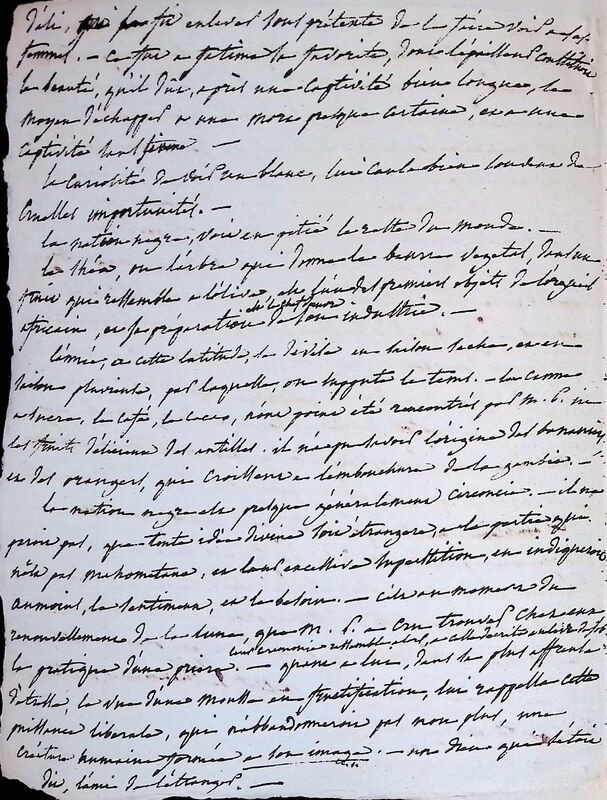 d'ali, qui la fit enlever sous prétexte de la faire voir a ses
femmes. — ce fut a fatima sa favorite, dont l'épaisseur constitue
la beauté, qu'il dût, après une captivité bien longue, le
moyen d'échapper a une mort presque certaine, ou a une
captivité sans terme —
la curiosité de voir un blanc, lui causa bien souvent de
cruelles importunités. —
la nation negre, voit en pitié le reste du monde. —
le shéa, ou l'arbre qui donne le beurre vegetal, dont le
fruit qui ressemble a l'olive, est l'un des premiers objets de l'orgueil
africain, et sa préparation de son industrie. —
l'année, a cette latitude, se divise en saison seche, et en
saison pluvieuse, par laquelle, on supporte le tems. — la canne
a sucre, le café, le cacao, n'ont point été rencontrés par M. P. ni
les fruits délicieux des antilles. il n'a pu savoir l'origine des bananiers
et des orangers, qui croissent a l'embouchure de la gambie. —
la nation negre est presque généralement circoncise. — il ne
paroit pas, que toute idée divine soit étrangere, a la partie qui
n'est pas mahometane, et leur excessive superstition, en indiqueroit
aumoins, le sentiment, et le besoin. — c'est au moment du
renouvellement de la lune, que M. P. a cru trouver chez eux
la pratique d'une priere. — quant a lui, dans la plus affreuse
détresse, la vue d'une mousse en fructification, lui rappella cette
puissance liberale, qui n'abbandonneroit pas non plus, une
créature humaine formée a son image. — un dieu qui s'étoit
dit, l'ami de l'étranger. —